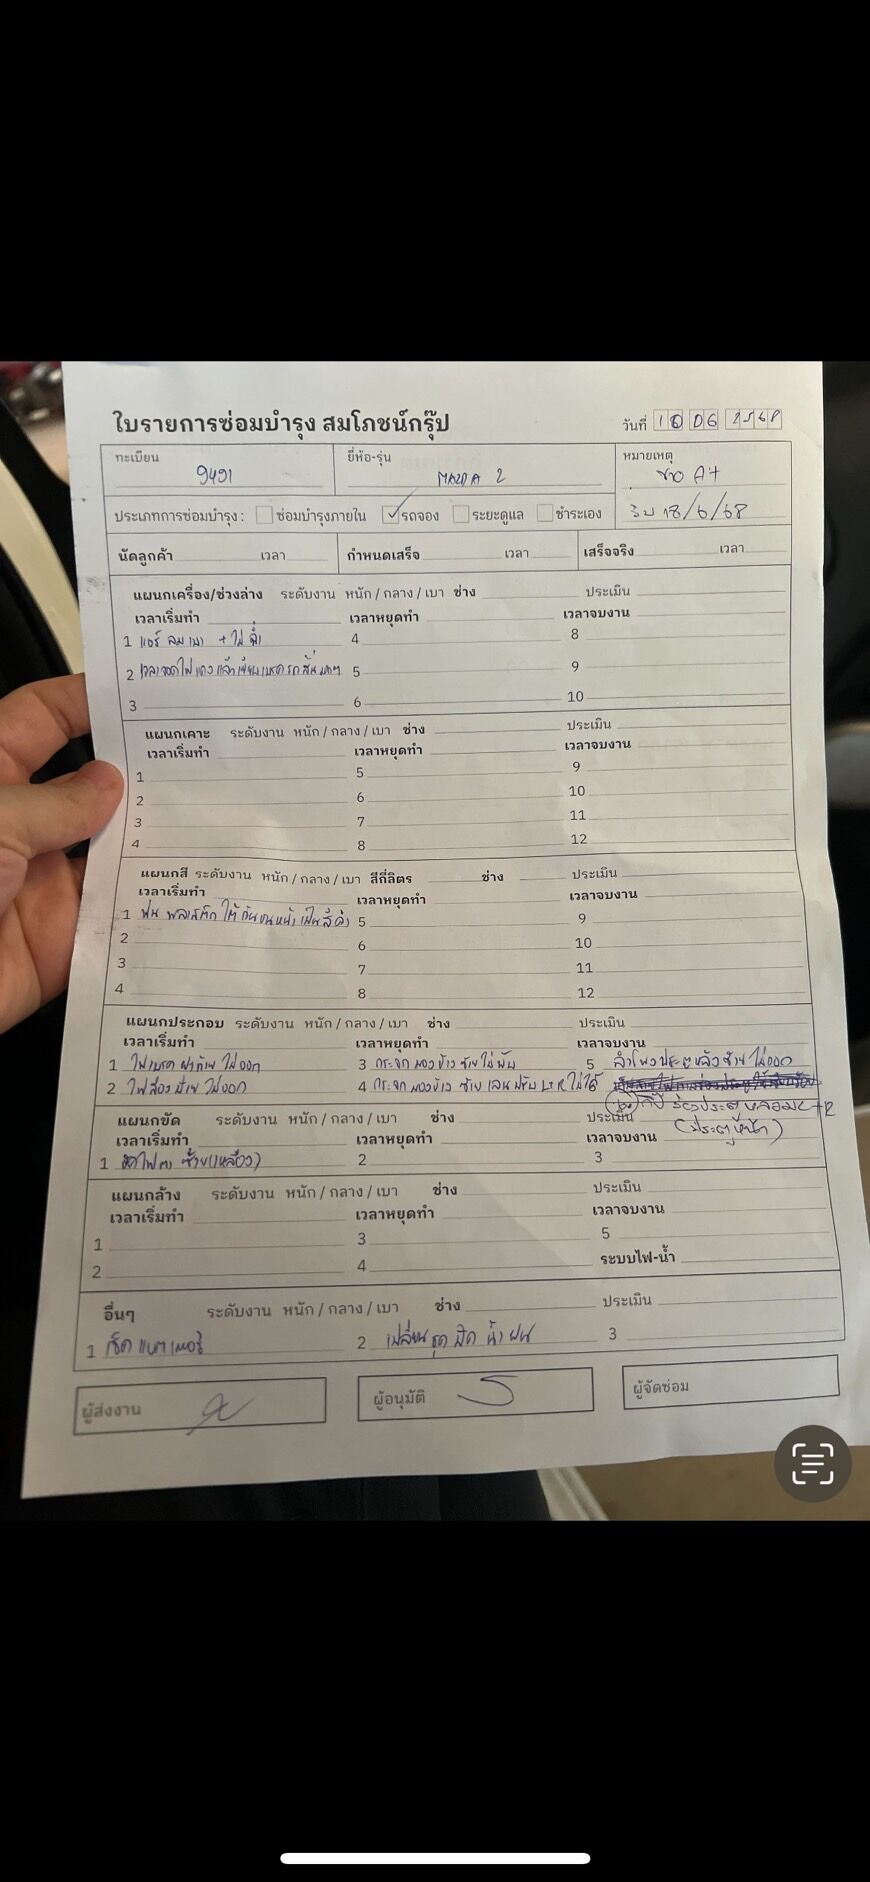 ใบรายการซ่อมบำรุง สมโภชน์กรุ๊ป
วันที่ 10 06 2568
ทะเบียน 9491 ยี่ห้อ-รุ่น MAZDA 2 หมายเหตุ
ขาว AT
ประเภทการซ่อมบำรุง : ซ่อมบำรุงภายใน รถจอง ระยะดูแล ชำระเอง รับ 18/6/68
นัดลูกค้า เวลา กำหนดเสร็จ เวลา เสร็จจริง เวลา
แผนกเครื่อง/ช่วงล่าง ระดับงาน หนัก / กลาง / เบา ช่าง ประเมิน
เวลาเริ่มทำ เวลาหยุดทำ เวลาจบงาน
1 แอร์ ลมเบา + ไม่ฉ่ำ 4 8
2 เวลาจอดไฟแดงแล้วเหยียบเบรครถสั่นมากๆ 5 9
3 6 10
แผนกเคาะ ระดับงาน หนัก / กลาง / เบา ช่าง ประเมิน
เวลาเริ่มทำ เวลาหยุดทำ เวลาจบงาน
1 5 9
2 6 10
3 7 11
4 8 12
แผนกสี ระดับงาน หนัก / กลาง / เบา สีกี่ลิตร ช่าง ประเมิน
เวลาเริ่มทำ เวลาหยุดทำ เวลาจบงาน
1 พ่น พลาสติก ใต้กันชนหน้าเป็นสีดำ 5 9
2 6 10
3 7 11
4 8 12
แผนกประกอบ ระดับงาน หนัก / กลาง / เบา ช่าง ประเมิน
เวลาเริ่มทำ เวลาหยุดทำ เวลาจบงาน
1 ไฟเบรค ฝาท้าย ไม่ออก 3 กระจกมองข้าง ซ้ายไม่พับ 5 ลำโพงประตูหลังซ้าย ไม่ออก
2 ไฟส่องป้าย ไม่ออก 4 กระจกมองข้าง ซ้าย เลนปรับ L+R ไม่ได้
กิ๊ป ร่องประตู หลวม L+R
แผนกขัด ระดับงาน หนัก / กลาง / เบา ช่าง ประเมิน
(ประตูหน้า)
เวลาเริ่มทำ เวลาหยุดทำ เวลาจบงาน
1 ขัดไฟตา ซ้าย(เหลือง) 2 3
แผนกล้าง ระดับงาน หนัก / กลาง / เบา ช่าง ประเมิน
เวลาเริ่มทำ เวลาหยุดทำ เวลาจบงาน
1 3 5
2 4 ระบบไฟ-น้ำ
อื่นๆ ระดับงาน หนัก / กลาง / เบา ช่าง ประเมิน
1 เช็ค แบตเตอรี่ 2 เปลี่ยน ชุด ปัด น้ำ ฝน 3
ผู้ส่งงาน ผู้อนุมัติ ผู้จัดซ่อม